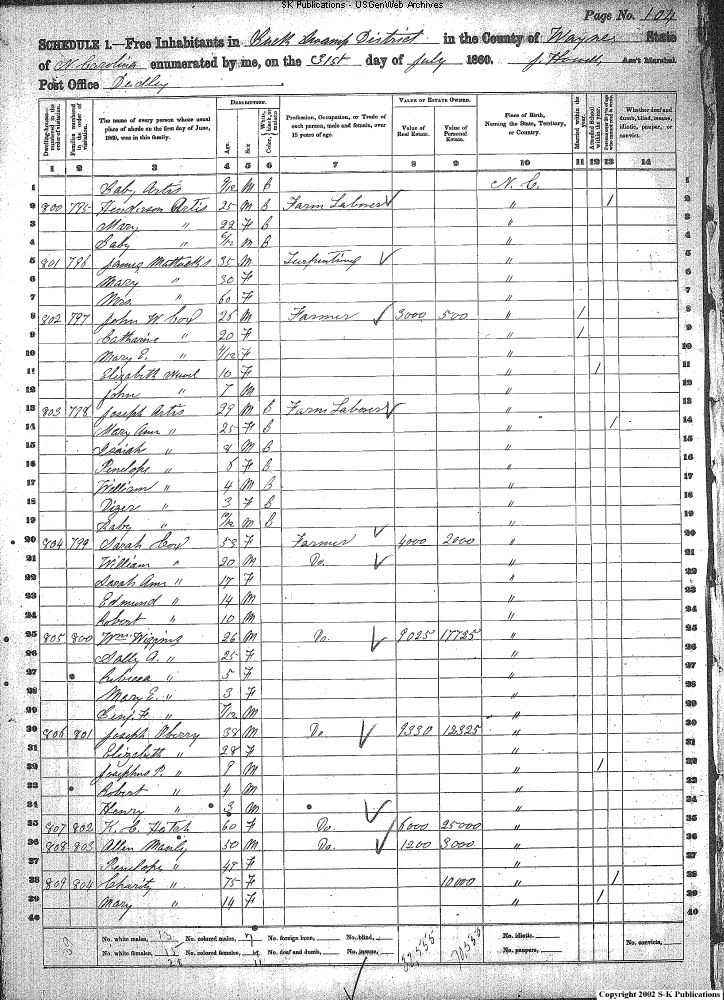 SK Publications - USGenWeb Archives
Page No. 104
SCHEDULE 1.—Free Inhabitants in Buck Swamp District in the County of Wayne State
of N. Carolina enumerated by me, on the 31st day of July 1860. J. Howell Ass't Marshal.
Post Office Dudley
Dwelling-houses numbered in the order of visitation. Families numbered in the order of visitation. The name of every person whose usual place of abode on the first day of June, 1860, was in this family. DESCRIPTION. Age. Sex. White, black, or mulatto. Color, Profession, Occupation, or Trade of each person, male and female, over 15 years of age. VALUE OF ESTATE OWNED. Value of Real Estate. Value of Personal Estate. Place of Birth, Naming the State, Territory, or Country. Married within the year. Attended School within the year. Whether deaf and dumb, blind, insane, idiotic, pauper, or convict.
1 2 3 4 5 6 7 8 9 10 11 12 13 14
1 Baby Artis 9/12 M B N. C. 1
2 800 795 Henderson Artis 25 M B Farm Laborer " / 2
3 Mary " 22 F B " 3
4 Baby " 6/12 M B " 4
5 801 796 James Mattocks 35 M Turpentine " 5
6 Mary " 30 F " 6
7 " 60 F " 7
8 802 797 John W Cox 25 M Farmer 3000 500 " / 8
9 Catharine " 20 F " / 9
10 Mary E. " 4/12 F " 10
11 Elizabeth 10 F " / 11
12 John " 7 M " 12
13 803 798 Joseph Artis 29 M B Farm Laborer " 13
14 Mary Ann " 25 F B " / 14
15 Isaiah " 8 M B " 15
16 Penelope " 6 F B " 16
17 William " 4 M B " 17
18 " 3 F B " 18
19 Baby " M B " 19
20 804 799 Sarah Cox 59 F Farmer 4000 2000 " 20
21 William " 20 M Do. " 21
22 Sarah Ann " 17 F " 22
23 Edmund " 14 M " 23
24 Robert " 10 M " 24
25 805 800 Wm Wiggins 26 M Do. 9025 17725 " 25
26 Sally A. " 25 F " 26
27 Rebecca " 5 F " 27
28 Mary E. " 3 F " 28
29 Benj. F. " 7/12 M " 29
30 806 801 Joseph Oberry 38 M Do 9330 12325 " 30
31 Elizabeth " 28 F " 31
32 Josephus P. " 9 M " / 32
33 Robert " 4 M " 33
34 Henry " 3 M " 34
35 807 802 K. C. Hatch 60 F Do. 6000 25000 " 35
36 808 803 Allen Manly 50 M Do. 1200 3000 " 36
37 Penelope " 45 F " 37
38 809 804 Charity " 75 F 10000 " / 38
39 Mary " 14 F " / 39
40 40
No. white males, 13 No. colored males, 7 No. foreign born, No. blind, No. idiotic, No. convicts,
No. white females, 15 No. colored females, 4 No. deaf and dumb, No. insane, No. paupers,
28 11 32555
Copyright 2002 S-K Publications